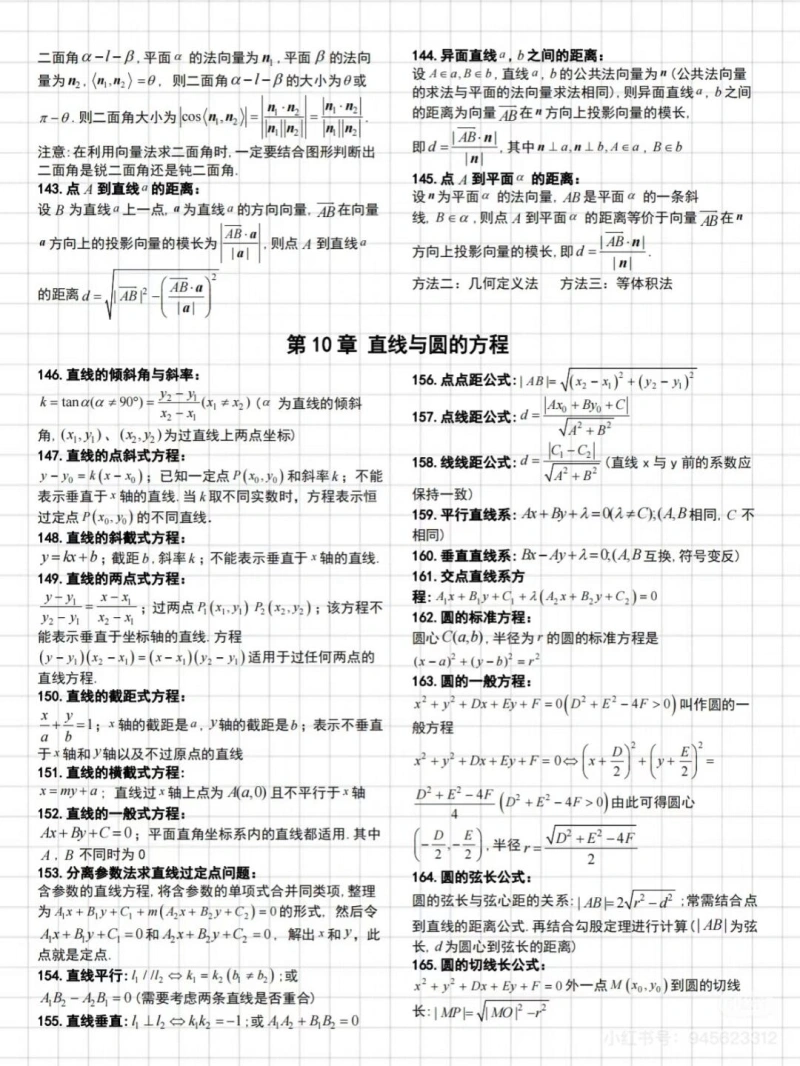 二面角 α−l−β,平面 α 的法向量为 n₁,平面 β 的法向
量为 n₂, ⟨n₁,n₂⟩=θ, 则二面角 α−l−β 的大小为 θ 或
π−θ.则二面角大小为 |cos⟨n₁,n₂⟩|=|n₁·n₂/|n₁||n₂||=|n₁·n₂|/|n₁||n₂|.
注意:在利用向量法求二面角时,一定要结合图形判断出
二面角是锐二面角还是钝二面角.
143.点 A 到直线 a 的距离:
设 B 为直线 a 上一点, a 为直线 a 的方向向量, AB 在向量
a 方向上的投影向量的模长为 |AB·a|/|a|,则点 A 到直线 a
的距离 d=√(|AB|²−(AB·a/|a|)²)
144.异面直线 a, b 之间的距离:
设 A∈a,B∈b,直线 a, b 的公共法向量为 n (公共法向量
的求法与平面的法向量求法相同),则异面直线 a, b 之间
的距离为向量 AB 在 n 方向上投影向量的模长,
即 d=|AB·n|/|n|,其中 n⊥a,n⊥b,A∈a, B∈b
145.点 A 到平面 α 的距离:
设 n 为平面 α 的法向量, AB 是平面 α 的一条斜
线, B∈α,则点 A 到平面 α 的距离等价于向量 AB 在 n
方向上投影向量的模长,即 d=|AB·n|/|n|.
方法二: 几何定义法 方法三: 等体积法
第 10 章 直线与圆的方程
146.直线的倾斜角与斜率:
k=tanα(α≠90°)=(y₂−y₁)/(x₂−x₁)(x₁≠x₂)(α 为直线的倾斜
角, (x₁,y₁)、(x₂,y₂)为过直线上两点坐标)
147.直线的点斜式方程:
y−y₀=k(x−x₀); 已知一定点 P(x₀,y₀) 和斜率 k; 不能
表示垂直于 x 轴的直线.当 k 取不同实数时, 方程表示恒
过定点 P(x₀,y₀) 的不同直线.
148.直线的斜截式方程:
y=kx+b; 截距 b,斜率 k; 不能表示垂直于 x 轴的直线.
149.直线的两点式方程:
(y−y₁)/(y₂−y₁)=(x−x₁)/(x₂−x₁); 过两点 P₁(x₁,y₁) P₂(x₂,y₂); 该方程不
能表示垂直于坐标轴的直线.方程
(y−y₁)(x₂−x₁)=(x−x₁)(y₂−y₁) 适用于过任何两点的
直线方程.
150.直线的截距式方程:
x/a+y/b=1; x 轴的截距是 a, y 轴的截距是 b; 表示不垂直
于 x 轴和 y 轴以及不过原点的直线
151.直线的横截式方程:
x=my+a; 直线过 x 轴上点为 A(a,0) 且不平行于 x 轴
152.直线的一般式方程:
Ax+By+C=0; 平面直角坐标系内的直线都适用.其中
A, B 不同时为 0
153.分离参数法求直线过定点问题:
含参数的直线方程,将含参数的单项式合并同类项,整理
为 A₁x+B₁y+C₁+m(A₂x+B₂y+C₂)=0 的形式, 然后令
A₁x+B₁y+C₁=0 和 A₂x+B₂y+C₂=0, 解出 x 和 y, 此
点就是定点.
154.直线平行: l₁//l₂⇔k₁=k₂(b₁≠b₂);或
A₁B₂−A₂B₁=0 (需要考虑两条直线是否重合)
155.直线垂直: l₁⊥l₂⇔k₁k₂=−1;或 A₁A₂+B₁B₂=0
156.点点距公式: |AB|=√((x₂−x₁)²+(y₂−y₁)²)
157.点线距公式: d=|Ax₀+By₀+C|/√(A²+B²)
158.线线距公式: d=|C₁−C₂|/√(A²+B²) (直线 x 与 y 前的系数应
保持一致)
159.平行直线系: Ax+By+λ=0(λ≠C);(A,B 相同, C 不
相同)
160.垂直直线系: Bx−Ay+λ=0;(A,B 互换,符号变反)
161.交点直线系方
程: A₁x+B₁y+C₁+λ(A₂x+B₂y+C₂)=0
162.圆的标准方程:
圆心 C(a,b),半径为 r 的圆的标准方程是
(x−a)²+(y−b)²=r²
163.圆的一般方程:
x²+y²+Dx+Ey+F=0(D²+E²−4F>0) 叫作圆的一
般方程
x²+y²+Dx+Ey+F=0⇔(x+D/2)²+(y+E/2)²=
(D²+E²−4F)/4 (D²+E²−4F>0)由此可得圆心
(−D/2,−E/2),半径 r=√(D²+E²−4F)/2
164.圆的弦长公式:
圆的弦长与弦心距的关系: |AB|=2√(r²−d²);常需结合点
到直线的距离公式.再结合勾股定理进行计算(|AB|为弦
长, d 为圆心到弦长的距离)
165.圆的切线长公式:
x²+y²+Dx+Ey+F=0 外一点 M(x₀,y₀)到圆的切线
长: |MP|=√(|MO|²−r²)
小红书号: 945623312